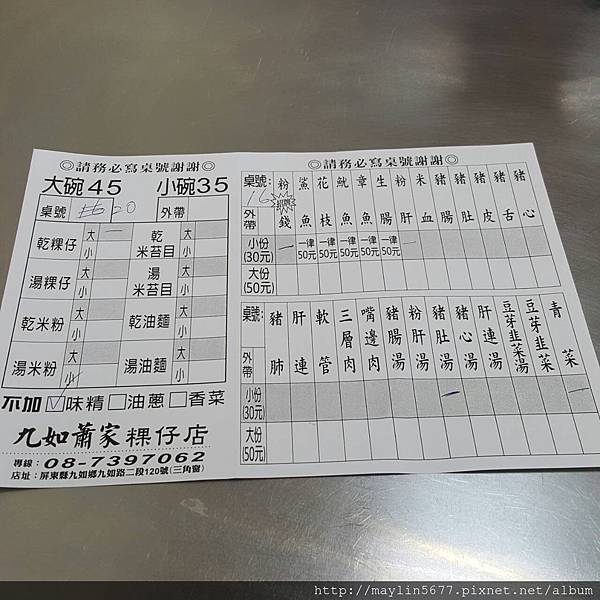 ◎請務必寫桌號謝謝◎
大碗45 小碗35
桌號 20 外帶
乾粿仔 大 小 乾米苔目 大 小
湯粿仔 大 小 湯米苔目 大 小
乾米粉 大 小 乾油麵 大 小
湯米粉 大 小 湯油麵 大 小
不加 味精 油蔥 香菜
九如蕭家粿仔店
專線：08-7397062
店址：屏東縣九如鄉九如路二段120號(三角窗)
◎請務必寫桌號謝謝◎
桌號: 16 外帶
粉錢 鯊魚 花枝 魷魚 章魚 生腸 粉肝 米血 豬腸 豬肚 豬皮 豬舌 豬心
小份(30元) 一律50元 一律50元 一律50元 一律50元 一律50元
大份(50元)
桌號: 外帶
豬肺 肝連 軟管 三層肉 嘴邊肉 豬腸湯 粉肝湯 豬肚湯 豬心湯 肝連湯 豆芽韭菜湯 豆芽韭菜 青菜
小份(30元)
大份(50元)
http://maylin5677.pixnet.net/album